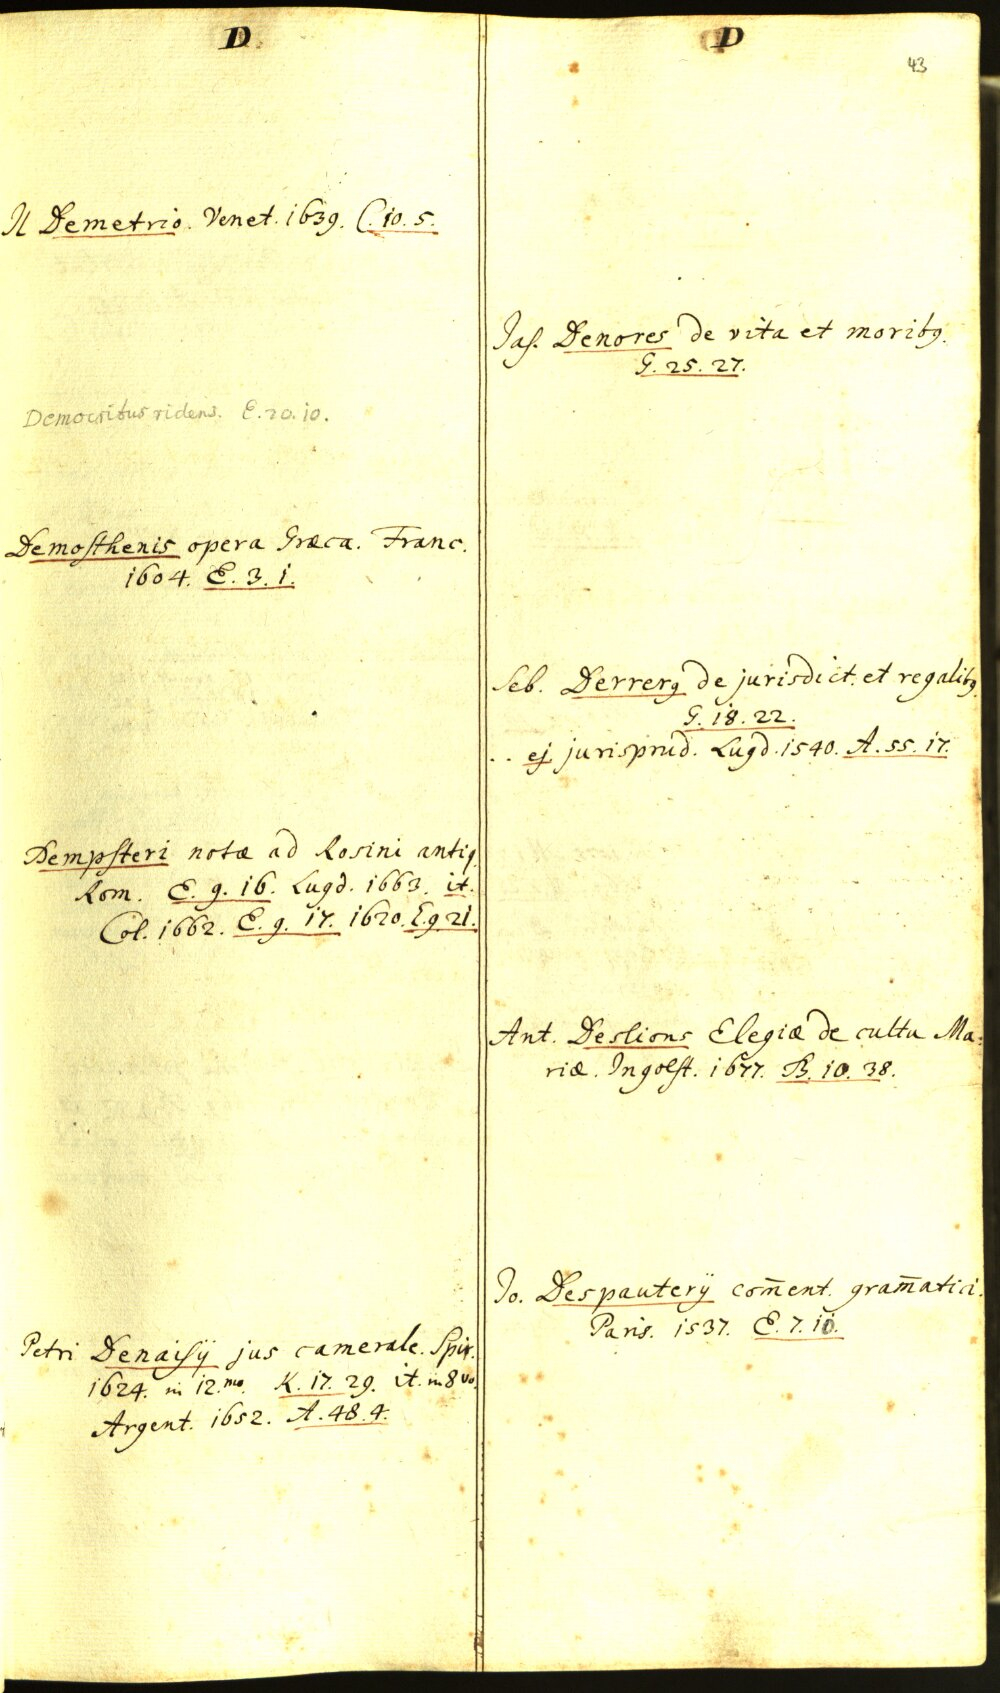 D
Il Demetrio. Venet. 1639. C. 10. 5.
Democritus ridens. E. 20. 10.
Demosthenis opera Græca. Franc.
1604. E. 3. 1.
Dempsteri notæ ad Rosini antiq.
Rom. E. 9. 16. Lugd. 1663. it.
Col. 1662. E. 9. 17. 1620. E. 9 21.
Petri Denaisÿ jus camerale. Spir.
1624. in 12.mo K. 17. 29. it. in 8vo.
Argent. 1652. A. 48. 4.
D
43
Jas. Denores de vita et moribꝰ.
G. 25. 27.
Seb. Derrerꝰ de jurisdict. et regalibꝰ
G. 18. 22.
.. ej jurisprud. Lugd. 1540. A. 55. 17.
Ant. Deslions Elegiæ de cultu Ma:
riæ. Ingolst. 1677. B. 10. 38.
Jo. Despauterÿ com̄ent. gram̄atici.
Paris. 1537. E. 7. 10.